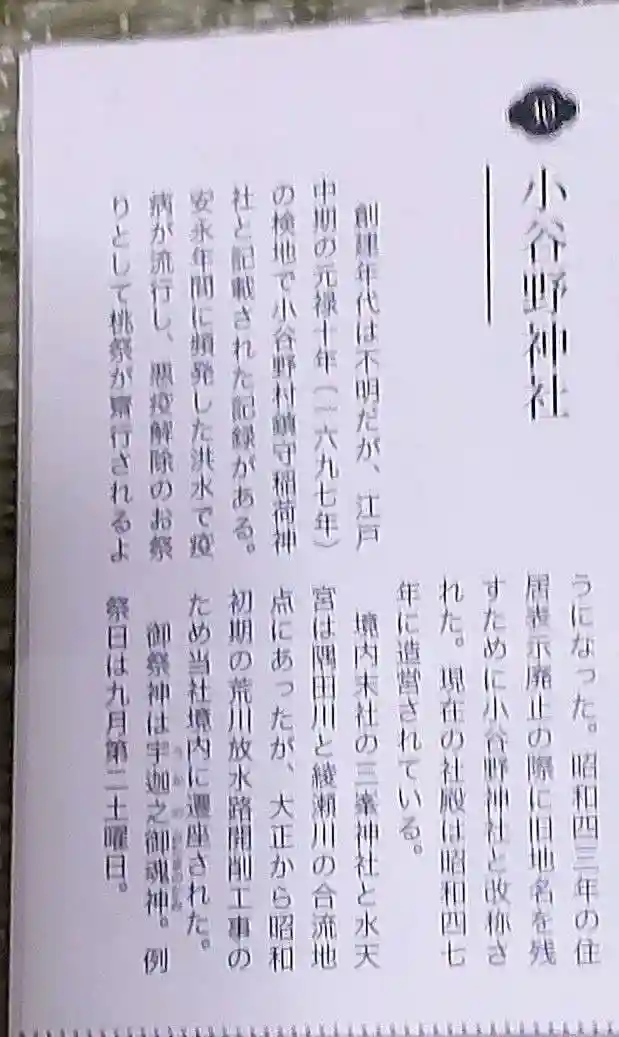 小谷野神社
創建年代は不明だが、江戸
中期の元禄十年（一六九七年）
の検地で小谷野村鎮守稲荷神
社と記載された記録がある。
安永年間に頻発した洪水で疫
病が流行し、悪疫解除のお祭
りとして桃祭が齋行されるよ
うになった。昭和四三年の住
居表示廃止の際に旧地名を残
すために小谷野神社と改称さ
れた。現在の社殿は昭和四七
年に造営されている。
境内末社の三峯神社と水天
宮は隅田川と綾瀬川の合流地
点にあったが、大正から昭和
初期の荒川放水路開削工事の
ため当社境内に遷座された。
御祭神は宇迦之御魂神。例
祭日は九月第二土曜日。